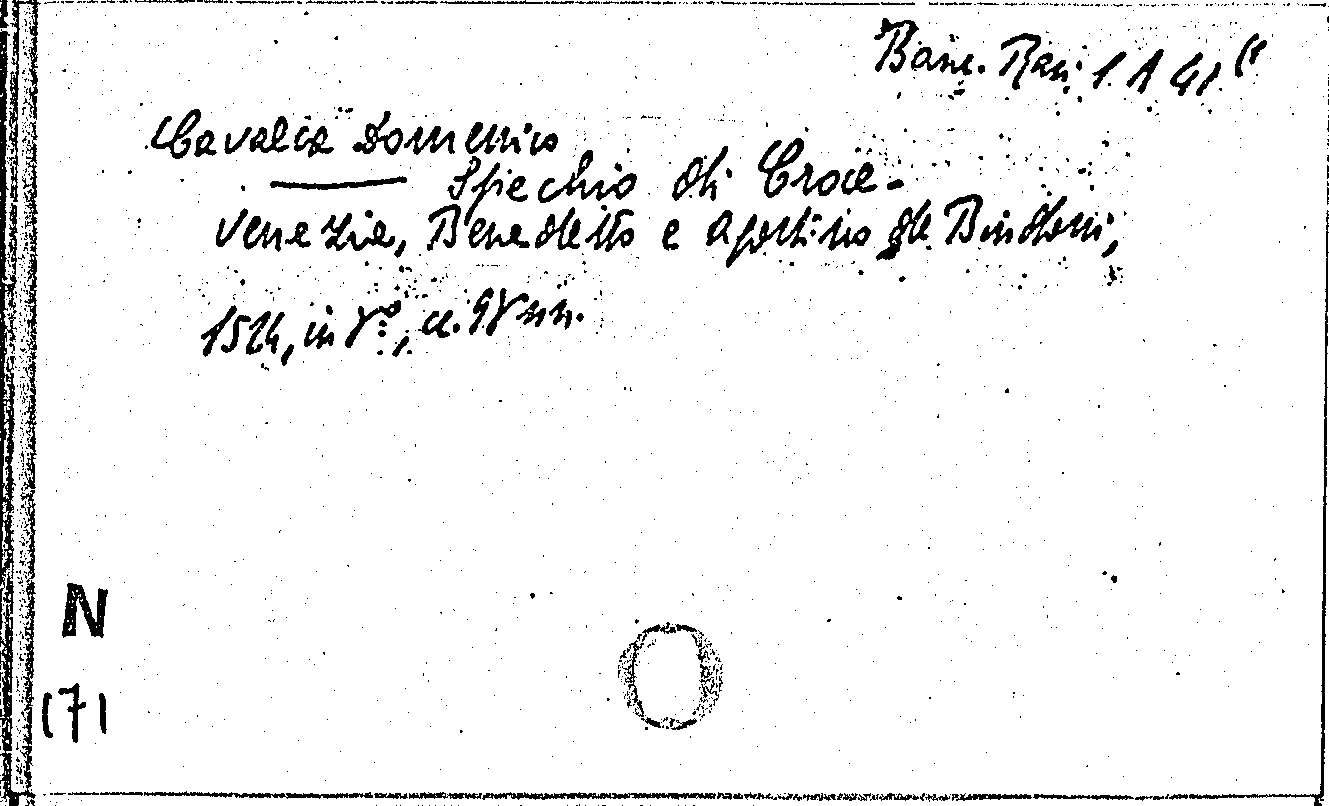 Banc. Rari 1 A 41 (1
Cavalca Domenico
Specchio di Croce -
Venezia, Benedetto e Agostino de Bindoni,
1524, in 8°, cc. 98 nn.
N
(7)